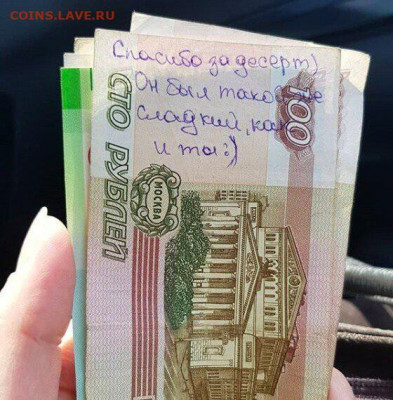 COINS.LAVE.RU
Спасибо за десерт)
Он был такой же
сладкий, как
и ты :)
100
СТО РУБЛЕЙ
МОСКВА